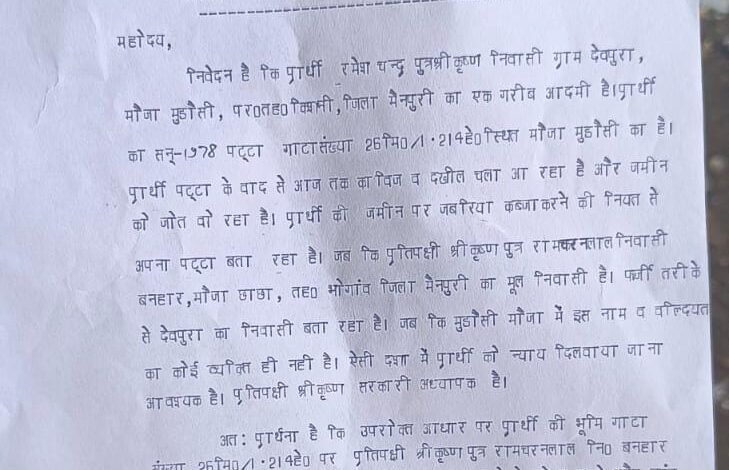 महोदय,
निवेदन है कि प्रार्थी रमेश चन्द्र पुत्रश्रीकृष्ण निवासी ग्राम देवपुरा,
मौजा मुडौसी, पर0तह0किशनी, जिला मैनपुरी का एक गरीब आदमी है।प्रार्थी
का सन्-1978 पट्टा गाटासंख्या 26मि0/1.214हे0स्थित मौजा मुडौसी का है।
प्रार्थी पट्टा के वाद से आज तक काविज व दखील चला आ रहा है और जमीन
को जोत वो रहा है। प्रार्थी की जमीन पर जबरिया कब्जाकरने की नियत से
अपना पट्टा बता रहा है। जब कि प्रतिपक्षी श्रीकृष्ण पुत्र रामचरनलाल निवासी
बनहार,मौजा छाछा, तह0 भोगांव जिला मैनपुरी का मूल निवासी है। फर्जी तरीके
से देवपुरा का निवासी बता रहा है। जब कि मुडौसी मौजा में इस नाम व वल्दियत
का कोई व्यक्ति ही नही है। ऐसी दशा में प्रार्थी को न्याय दिलवाया जाना
आवश्यक है। प्रतिपक्षी श्रीकृष्ण सरकारी अध्यापक है।
अत: प्रार्थना है कि उपरोक्त आधार पर प्रार्थी की भूमि गाटा
संख्या 26मि0/1.214हे0 पर प्रतिपक्षी श्रीकृष्ण पुत्र रामचरनलाल नि0 बनहार